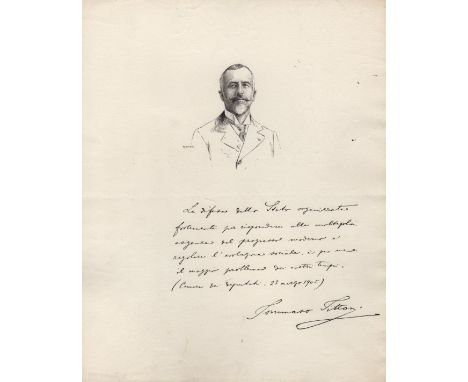 La difesa dello Stato organizzato
fortemente per rispondere alle molteplici
esigenze del progresso moderno e
regolare l'evoluzione sociale, è per me
il maggior problema dei nostri tempi.
(Camera dei Deputati. 23 marzo 1905)
Tommaso Tittoni